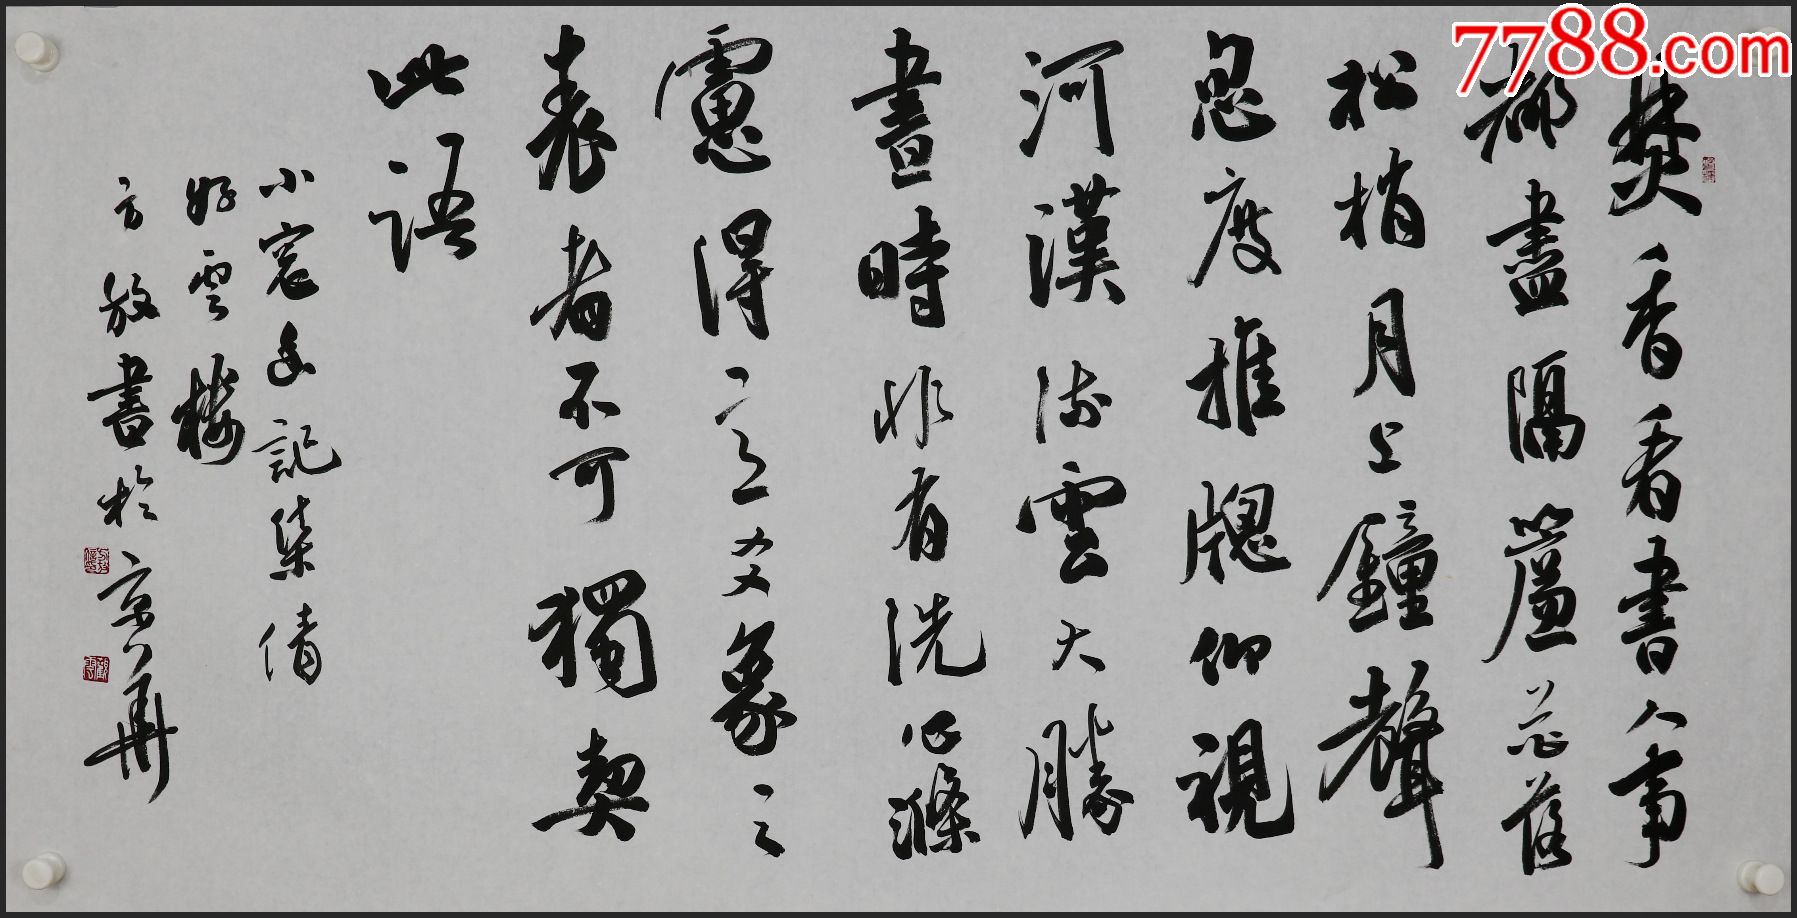 7788.com
焚香看書人事
都盡隔簾花落
松梢月上鐘聲
忽度推牕仰視
河漢流雲大勝
晝時非有洗心滌
慮得意爻象之
表者不可獨契
此語
小窗幽記集倩
好雲樓
方放書於京華